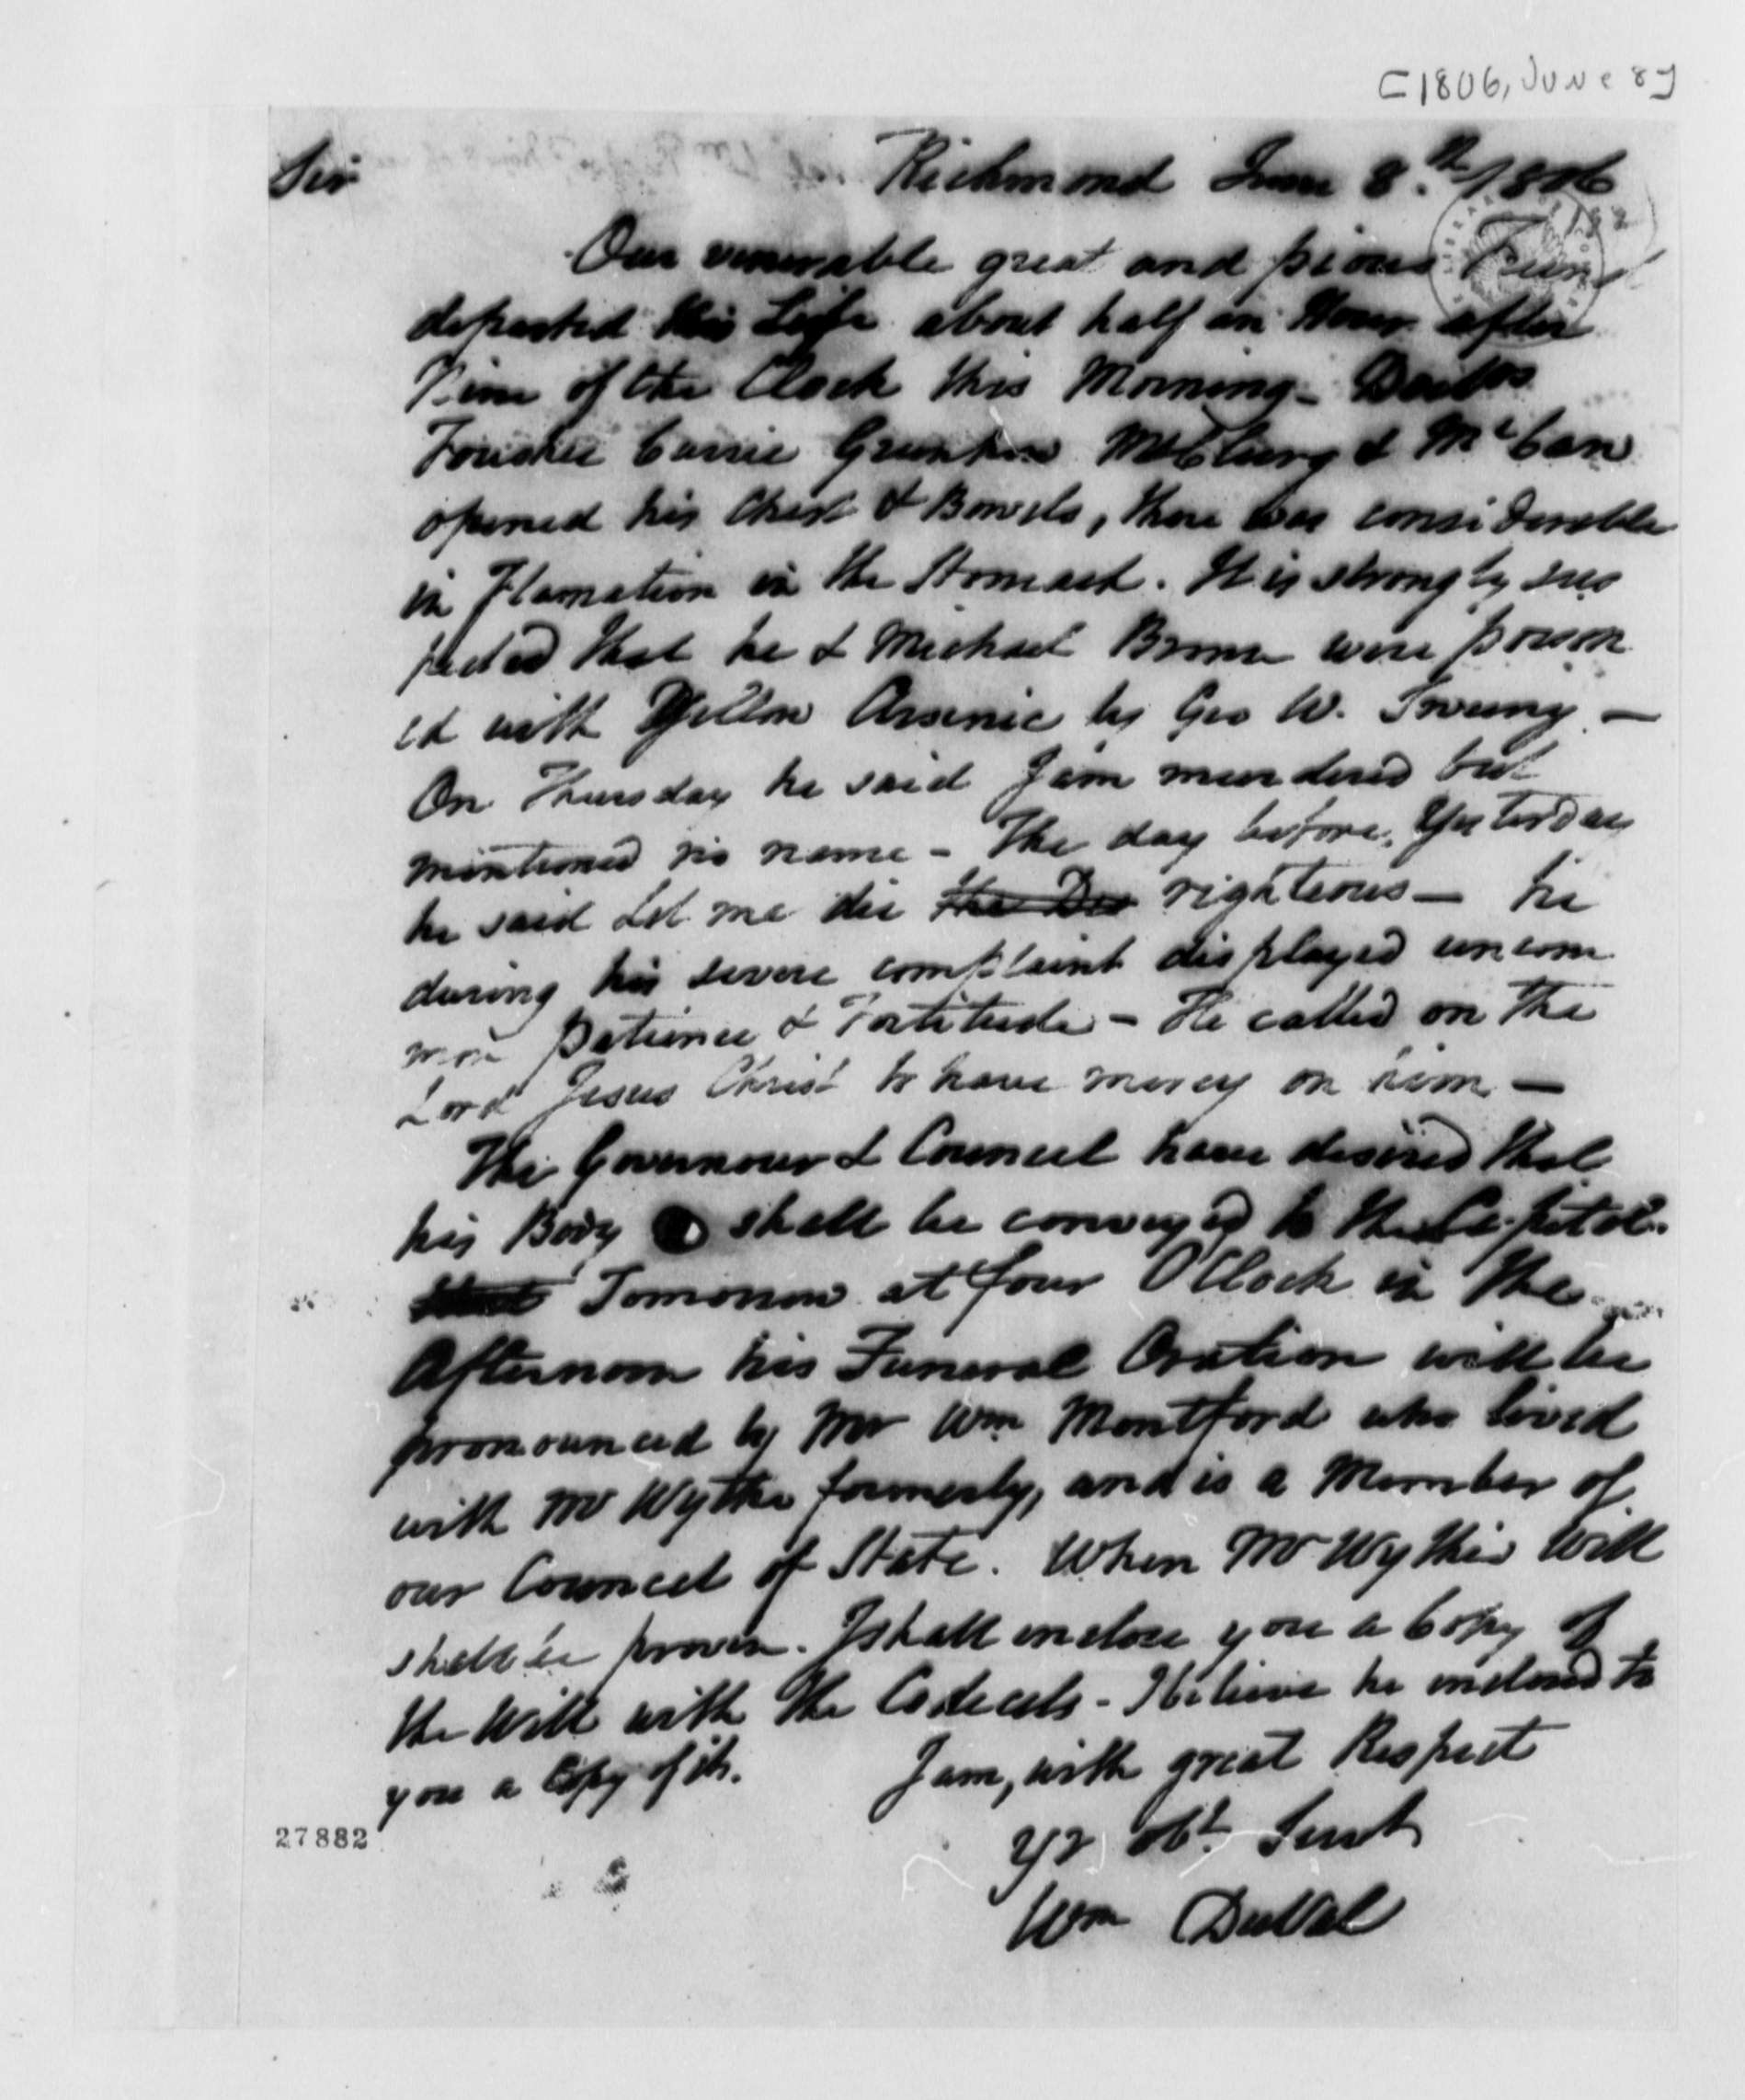 [1806, June 8]
Sir Richmond June 8.th 1806
Our venerable great and pious Friend
departed this Life about half an Hour after
Nine of the Clock this Morning - Doctors
Foushee Currie Greenhow McClurg & McCaw
opened his Chest & Bowels, there was considerable
in Flamation in the Stomach. It is strongly sus
pected that he & Michael Brown were poison
ed with Yellow Arsenic by Geo W. Sweeny —
On Thursday he said I am murdered but
mentioned no name - The day before Yesterday
he said Let me die the righteous — he
during his severe complaint displayed uncom
mon patience & Fortitude - He called on the
Lord Jesus Christ to have mercy on him —
The Governour & Council have desired that
his Body shall be conveyed to the Capitol.
Tomorrow at four O'Clock in the
Afternoon his Funeral Oration will be
pronounced by Mr Wm Montford who lived
with Mr Wythe formerly, and is a Member of
our Council of State. When Mr Wythes Will
shall be proven. I shall inclose you a Copy of
the Will with the Codecels - I believe he inclosed to
you a Copy of it. I am, with great Respect
Yr obt Servt
Wm DuVal
27882